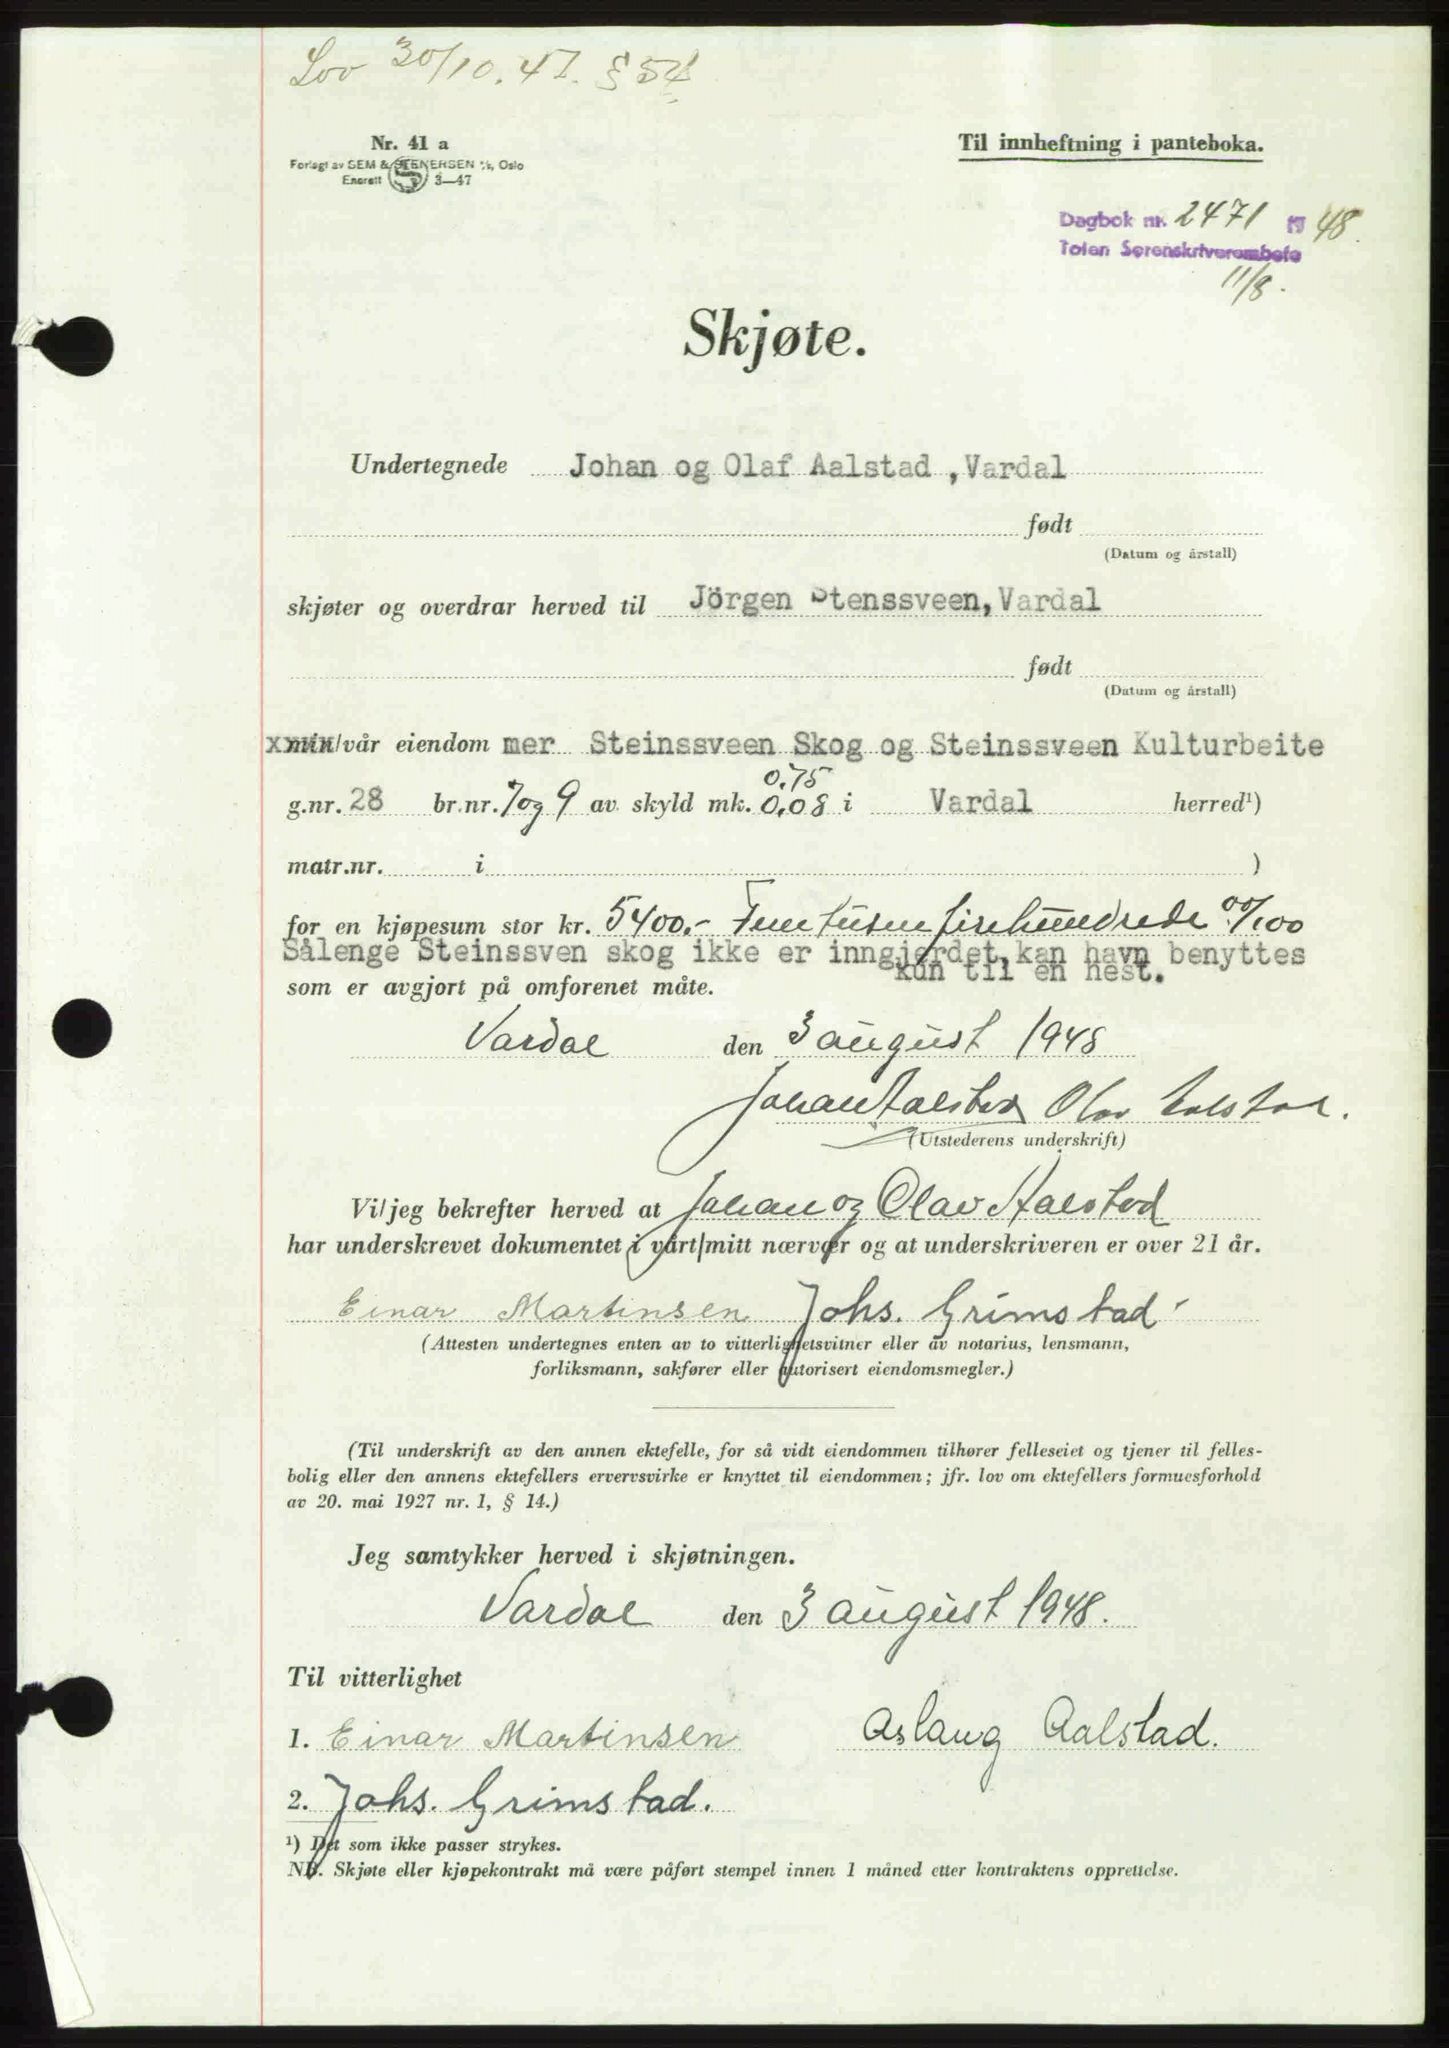 Lov 30/10.47. § 54
Nr. 41 a
Forlagt av SEM & STENERSEN A/S, Oslo
Enerett 3—47
Til innheftning i panteboka.
Dagbok nr. 2471 19 48.
Toten Sorenskriverembete
11/8.
Skjøte.
Undertegnede Johan og Olaf Aalstad ,Vardal
født
(Datum og årstall)
skjøter og overdrar herved til Jörgen Stenssveen,Vardal
født
(Datum og årstall)
min/vår eiendom mer Steinssveen Skog og Steinssveen Kulturbeite
0,75
g.nr. 28 br.nr. 7 og 9 av skyld mk. 0,08 i Vardal herred¹)
matr.nr. i )
for en kjøpesum stor kr. 5400.- Fem tusen firehundrede 00/100
Sålenge Steinssven skog ikke er inngjerdet,kan havn benyttes
kun til en hest.
som er avgjort på omforenet måte.
Vardal den 3 august 1948
Johan Aalstad Olav Aalstad.
(Utstederens underskrift)
Vi/jeg bekrefter herved at Johan og Olav Aalstad
har underskrevet dokumentet i vårt/mitt nærvær og at underskriveren er over 21 år.
Einar Martinsen Johs. Grimstad
(Attesten undertegnes enten av to vitterlighetsvitner eller av notarius, lensmann,
forliksmann, sakfører eller autorisert eiendomsmegler.)
(Til underskrift av den annen ektefelle, for så vidt eiendommen tilhører felleseiet og tjener til felles-
bolig eller den annens ektefellers ervervsvirke er knyttet til eiendommen; jfr. lov om ektefellers formuesforhold
av 20. mai 1927 nr. 1, § 14.)
Jeg samtykker herved i skjøtningen.
Vardal den 3 august 1948.
Til vitterlighet
1. Einar Martinsen Aslaug Aalstad.
2. Johs. Grimstad.
¹) Det som ikke passer strykes.
NB. Skjøte eller kjøpekontrakt må være påført stempel innen 1 måned etter kontraktens opprettelse.